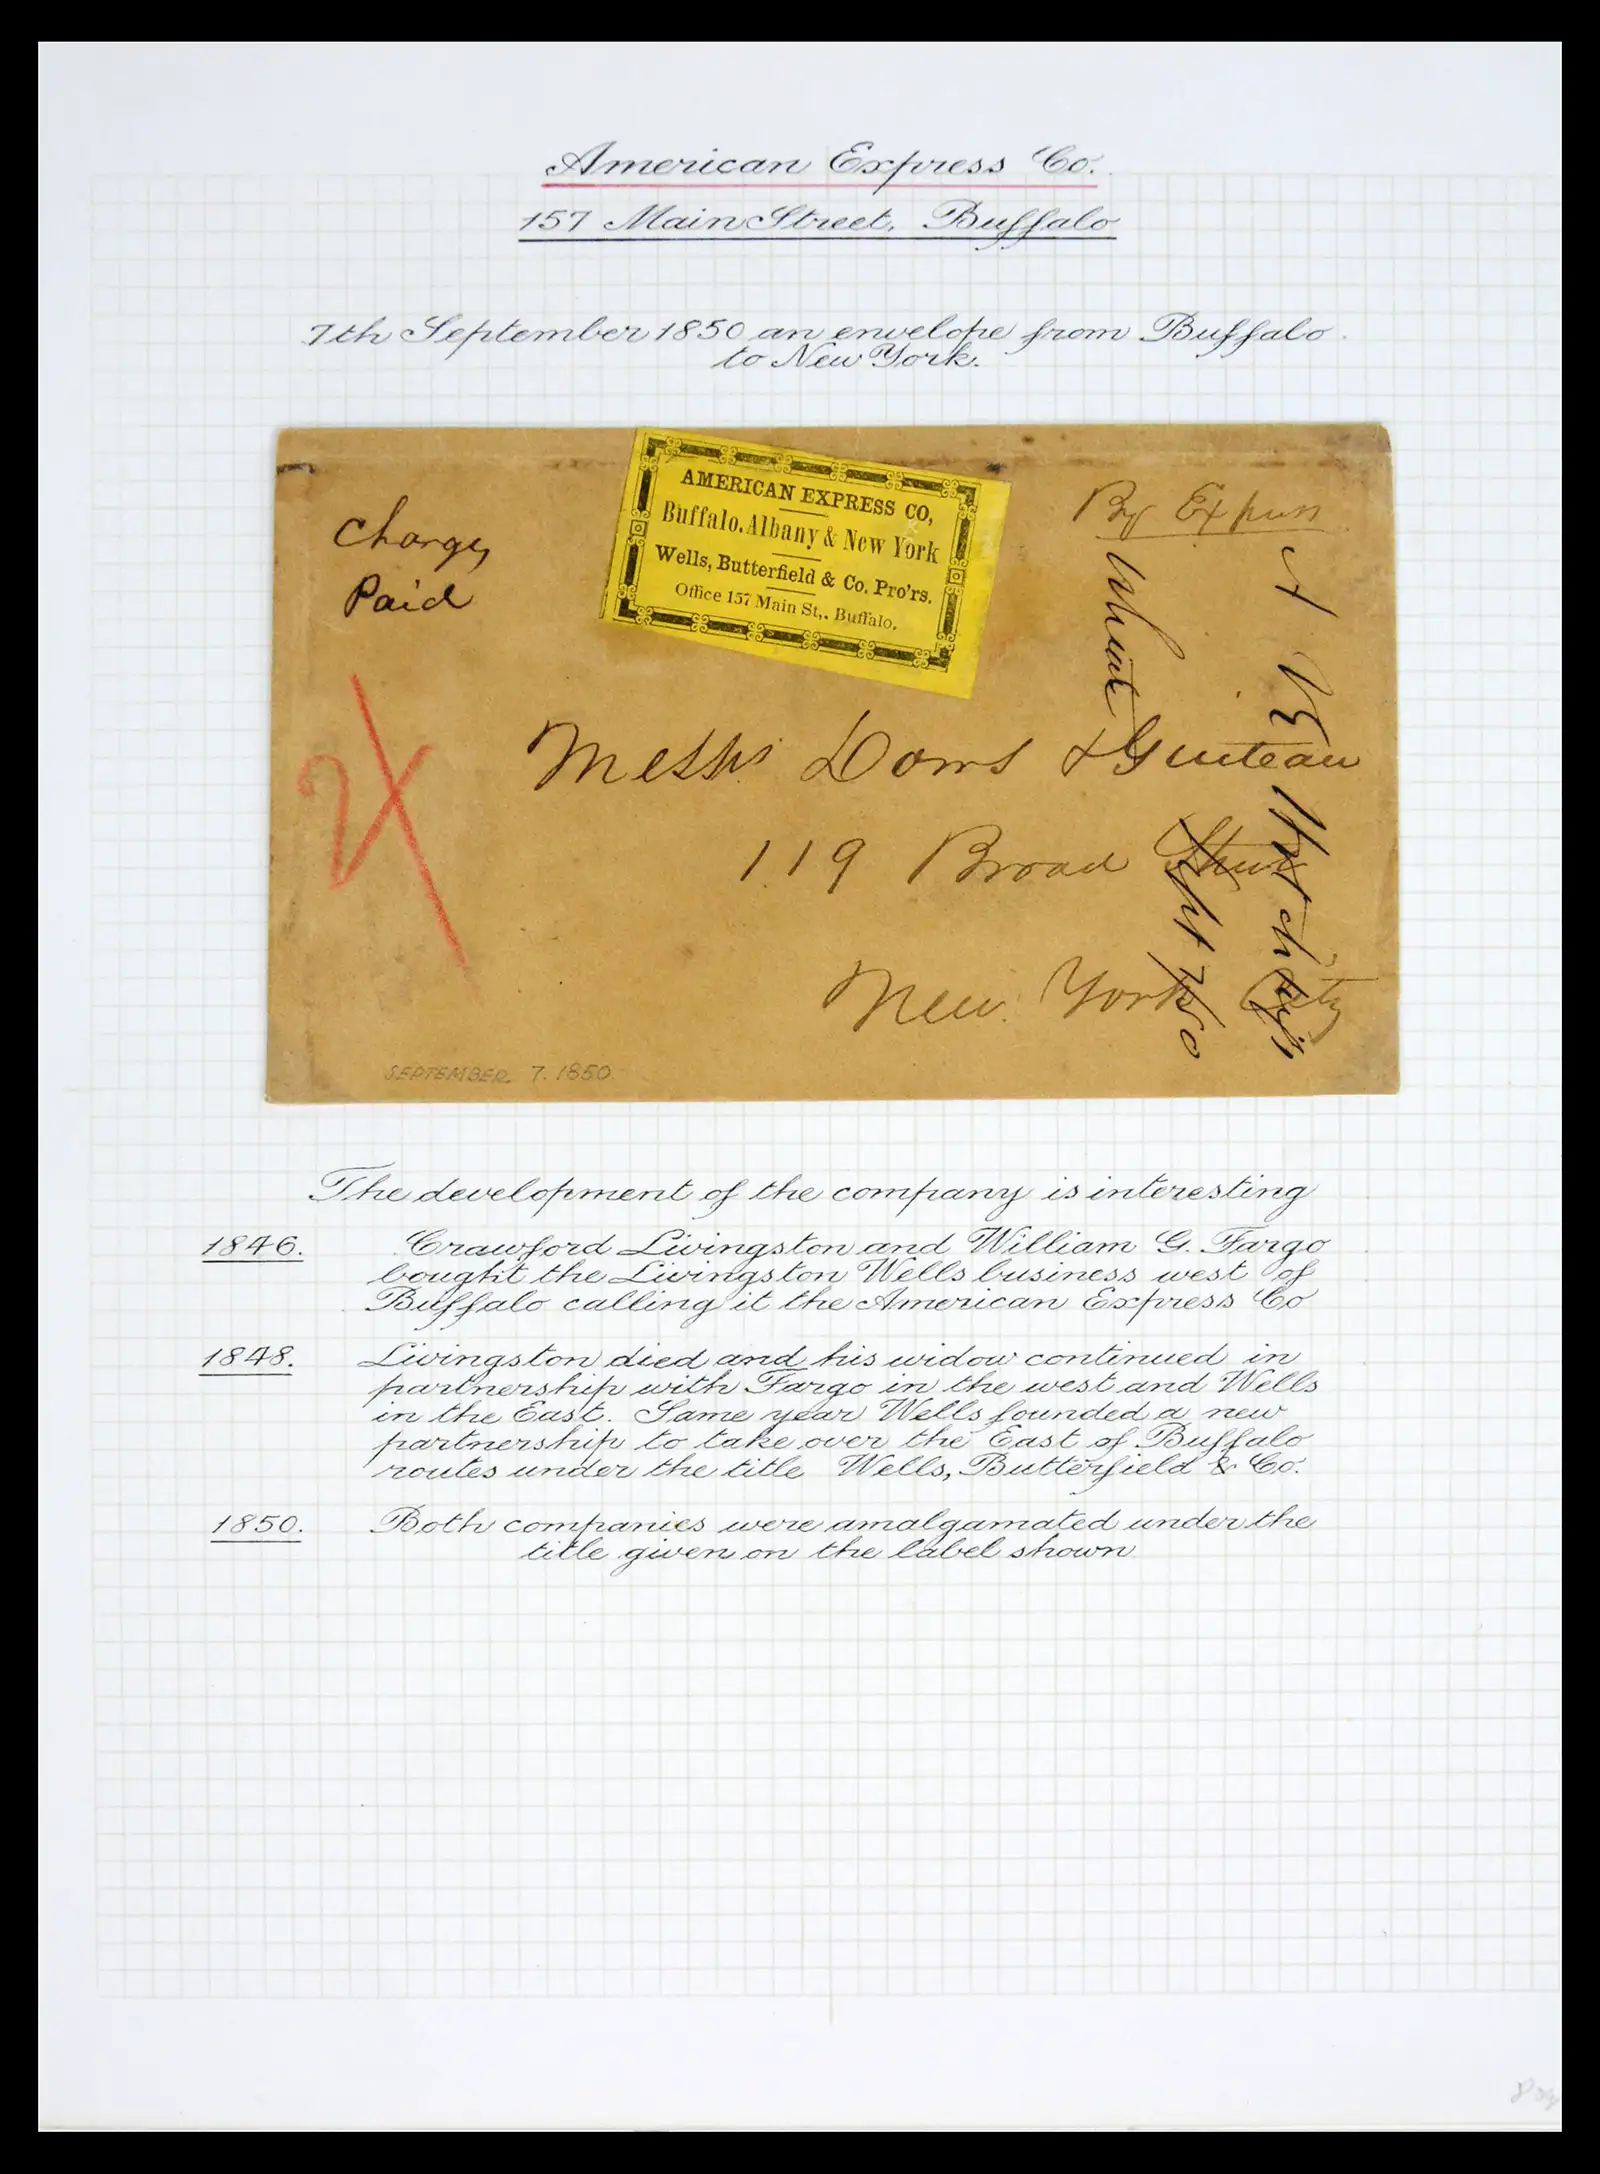 American Express Co.
157 Main Street, Buffalo
7th September 1850 an envelope from Buffalo
to New York.
Charges
Paid
AMERICAN EXPRESS CO,
Buffalo, Albany & New York
Wells, Butterfield & Co. Pro'rs.
Office 157 Main St,. Buffalo.
By Express
Messrs Dows & Guiteau
119 Broad Street
New York City
Sept 7/50
SEPTEMBER 7. 1850
The development of the company is interesting
1846. Crawford Livingston and William G. Fargo
bought the Livingston Wells business west of
Buffalo calling it the American Express Co
1848. Livingston died and his widow continued in
partnership with Fargo in the west and Wells
in the East. Same year Wells founded a new
partnership to take over the East of Buffalo
routes under the title Wells, Butterfield & Co.
1850. Both companies were amalgamated under the
title given on the label shown